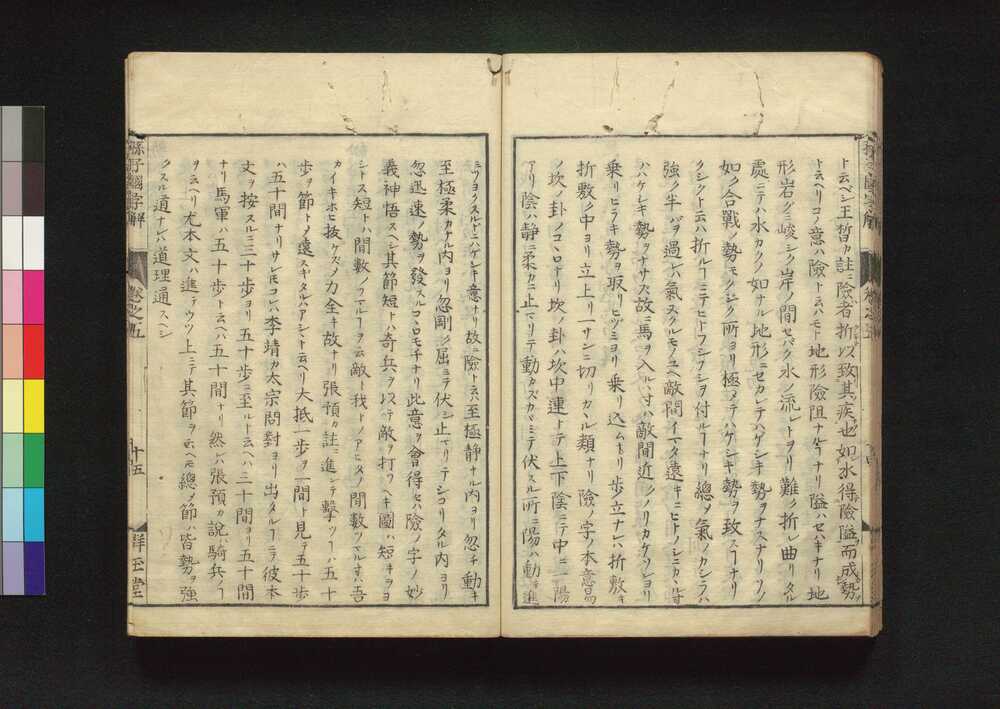 ト云ベシ王晳カ註ニ險者折以致其疾也如水得險隘而成勢
ト云ヘリコノ意ハ險ト云ハモト地形險阻ナルヿナリ隘ハセハキナリ地
形岩グミ峻シク岸ノ間セバク水ノ流レトヲリ難ク折レ曲リタル
處ニテハ水カクノ如ナル地形ニセカレテハゲシキ勢ヲナスナリソノ
如ク合戰ノ勢モクジク所ヨリ極メテハゲシキ勢ヲ致スヿナリ
クジクト云ハ折ルヿニテヒトフシフシヲ付ルヿナリ總〆氣ノカシラハ
強ク半バヲ過レバ氣スクルモノユヘ敵間イマタ遠キニヒトノシニカヽル寸
ハハケシキ勢ヲナサス故ニ馬ヲ入ルヽ寸ハ敵間近クノリカケソレヨリ
乗リヒラキ勢ヲ取リヒツミヨリ乗リ込ムナリ歩立ナレハ折敷キ
折敷ク中ヨリ立上リ一サンニ切リカヽル類ナリ險ノ字ノ本意易
ノ坎ノ卦ノコヽロナリ坎ノ卦ハ坎中連トテ上下陰ニテ中ニ一陽
アリ陰ハ静ニ柔カニ止マリテ動カズカヾミテ伏スル所ニ陽ハ動キ進
ミツヨクスルドニハケシキ意ナリ故ニ險ト云ハ至極静ナル内ヨリ忽チ動キ
至極柔カナル内ヨリ忽剛ク屈ミテ伏シ止マリテシコリタル内ヨリ
忽迅速ノ勢ヲ發スルコヽロモチナリ此意ヲ會得セハ險ノ字ノ妙
義神悟スヘシ其節短トハ奇兵ヲ以テ敵ヲ打ツヘキ圖ハ短キヲヨ
シトス短トハ間數ノツマルヿヲ云敵ト我トノアヒタノ間數ツマル寸ハ吾
カイキホヒ抜ケズノ力全キ故ナリ張預カ註ニ進レテ擊ツヿハ五十
歩ヲ節トノ遠スギタルハアシト云ヘリ大抵一歩ヲ一間ト見テ五十歩
ハ五十間ナリサレモコレハ李靖カ太宗問對ヨリ出タルヿニテ彼本
文ヲ按スルニ三十歩ヨリ五十歩ニ至ルト云ヘハ三十間ヨリ五十間
ナリ馬軍ハ五十歩ト云ヘハ五十間ナリ然レハ張預カ說ハ騎兵ノヿ
ヲ云ヘリ尤本文ハ進テウツ上ニテ其節ヲ云ヘ𪜈總〆節ハ皆勢ヲ強
クスル道ナレハ道理通スヘシ
孫子國字解
卷之五
十五
群玉堂